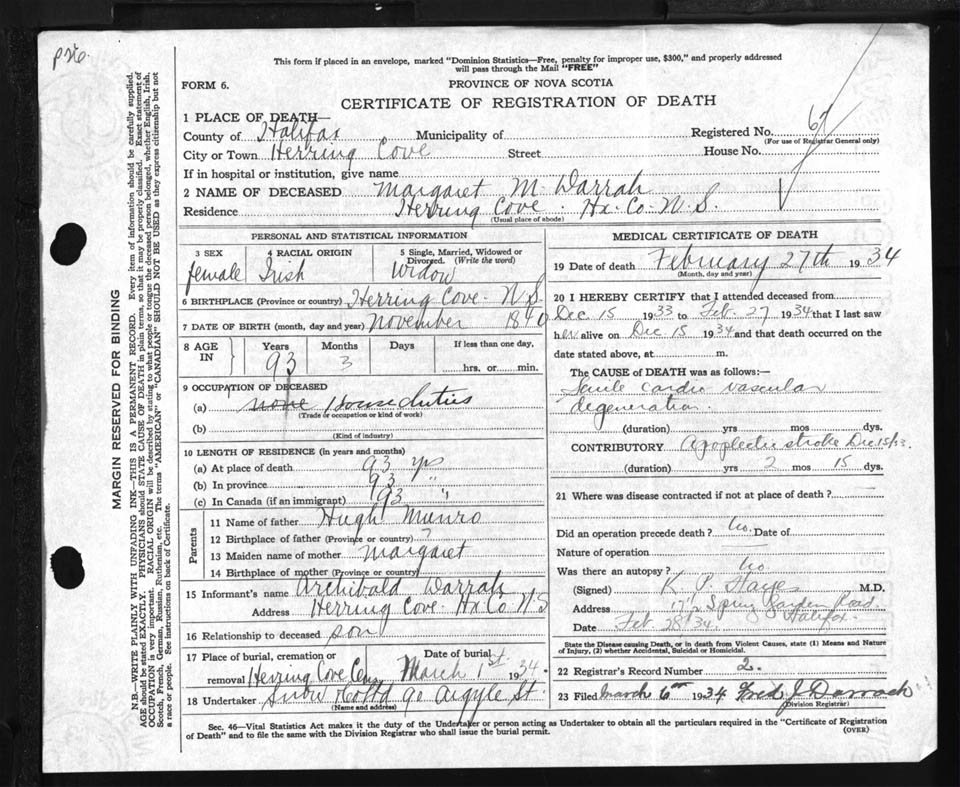 P26.
This form if placed in an envelope, marked "Dominion Statistics—Free, penalty for improper use, $300," and properly addressed
will pass through the Mail "FREE"
FORM 6.
PROVINCE OF NOVA SCOTIA
CERTIFICATE OF REGISTRATION OF DEATH
1 PLACE OF DEATH—
County of Halifax Municipality of Registered No. 67
(For use of Registrar General only)
City or Town Herring Cove Street House No.
If in hospital or institution, give name
2 NAME OF DECEASED Margaret M. Darrah
Residence Herring Cove. Hx. Co. N. S.
(Usual place of abode)
MARGIN RESERVED FOR BINDING
N.B.—WRITE PLAINLY WITH UNFADING INK—THIS IS A PERMANENT RECORD. Every item of information should be carefully supplied.
AGE should be stated EXACTLY. PHYSICIANS should STATE CAUSE OF DEATH in plain terms, so that it may be properly classified. Exact statement of
OCCUPATION is very important. RACIAL ORIGIN will be described by stating to what people or tongue the deceased person belonged, whether English, Irish,
Scotch, French, German, Russian, Ruthenian, etc. The terms "AMERICAN" or "CANADIAN" SHOULD NOT BE USED as they express citizenship but not
a race or people. See instructions on back of Certificate.
PERSONAL AND STATISTICAL INFORMATION
3 SEX
female
4 RACIAL ORIGIN
Irish
5 Single, Married, Widowed or
Divorced. (Write the word)
Widow
6 BIRTHPLACE (Province or country) Herring Cove. N.S.
7 DATE OF BIRTH (month, day and year) November 1840
8 AGE IN
Years Months Days If less than one day,
93 3
hrs. or min.
9 OCCUPATION OF DECEASED
(a) none House duties
(Trade or occupation or kind of work)
(b)
(Kind of industry)
10 LENGTH OF RESIDENCE (in years and months)
(a) At place of death 93 yrs
(b) In province 93 "
(c) In Canada (if an immigrant) 93 "
Parents
11 Name of father Hugh Munro
12 Birthplace of father (Province or country) ?
13 Maiden name of mother Margaret
14 Birthplace of mother (Province or country)
15 Informant's name Archibald Darrah
Address Herring Cove. Hx Co N S
16 Relationship to deceased son
17 Place of burial, cremation or Date of burial
removal Herring Cove Cem March 1st. 1934.
18 Undertaker Snow & Co Ltd 90 Argyle St.
(Name and address)
MEDICAL CERTIFICATE OF DEATH
19 Date of death February 27th 1934
(Month, day and year)
20 I HEREBY CERTIFY that I attended deceased from
Dec 15 1933 to Feb. 27 1934 that I last saw
her alive on Dec. 15 1934 and that death occurred on the
date stated above, at m.
The CAUSE of DEATH was as follows:—
Senile cardio vascular
degeneration.
(duration) yrs mos dys.
CONTRIBUTORY Apoplectic stroke Dec 15/33.
(duration) yrs 2 mos 15 dys.
21 Where was disease contracted if not at place of death?
Did an operation precede death? No. Date of
Nature of operation
Was there an autopsy? No
(Signed) K. P. Hayes M.D.
Address Spring Garden Road.
Halifax.
Date Feb 28 34.
State the Disease causing Death, or in death from Violent Causes, state (1) Means and Nature
of Injury, (2) whether Accidental, Suicidal or Homicidal.
22 Registrar's Record Number 2.
23 Filed March 6th 1934 Fred J Darrach
(Division Registrar)
Sec. 46—Vital Statistics Act makes it the duty of the Undertaker or person acting as Undertaker to obtain all the particulars required in the "Certificate of Registration
of Death" and to file the same with the Division Registrar who shall issue the burial permit.
(OVER)